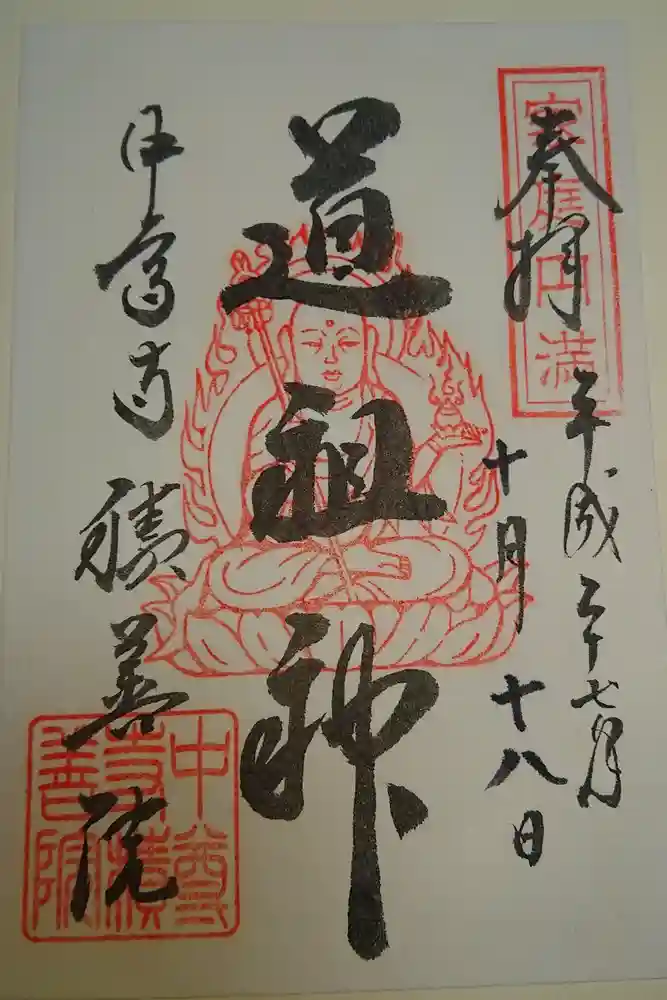 家庭円満
奉拝
平成二十七年
十月十八日
道祖神
中尊寺 積善院
中尊
寺積
善院